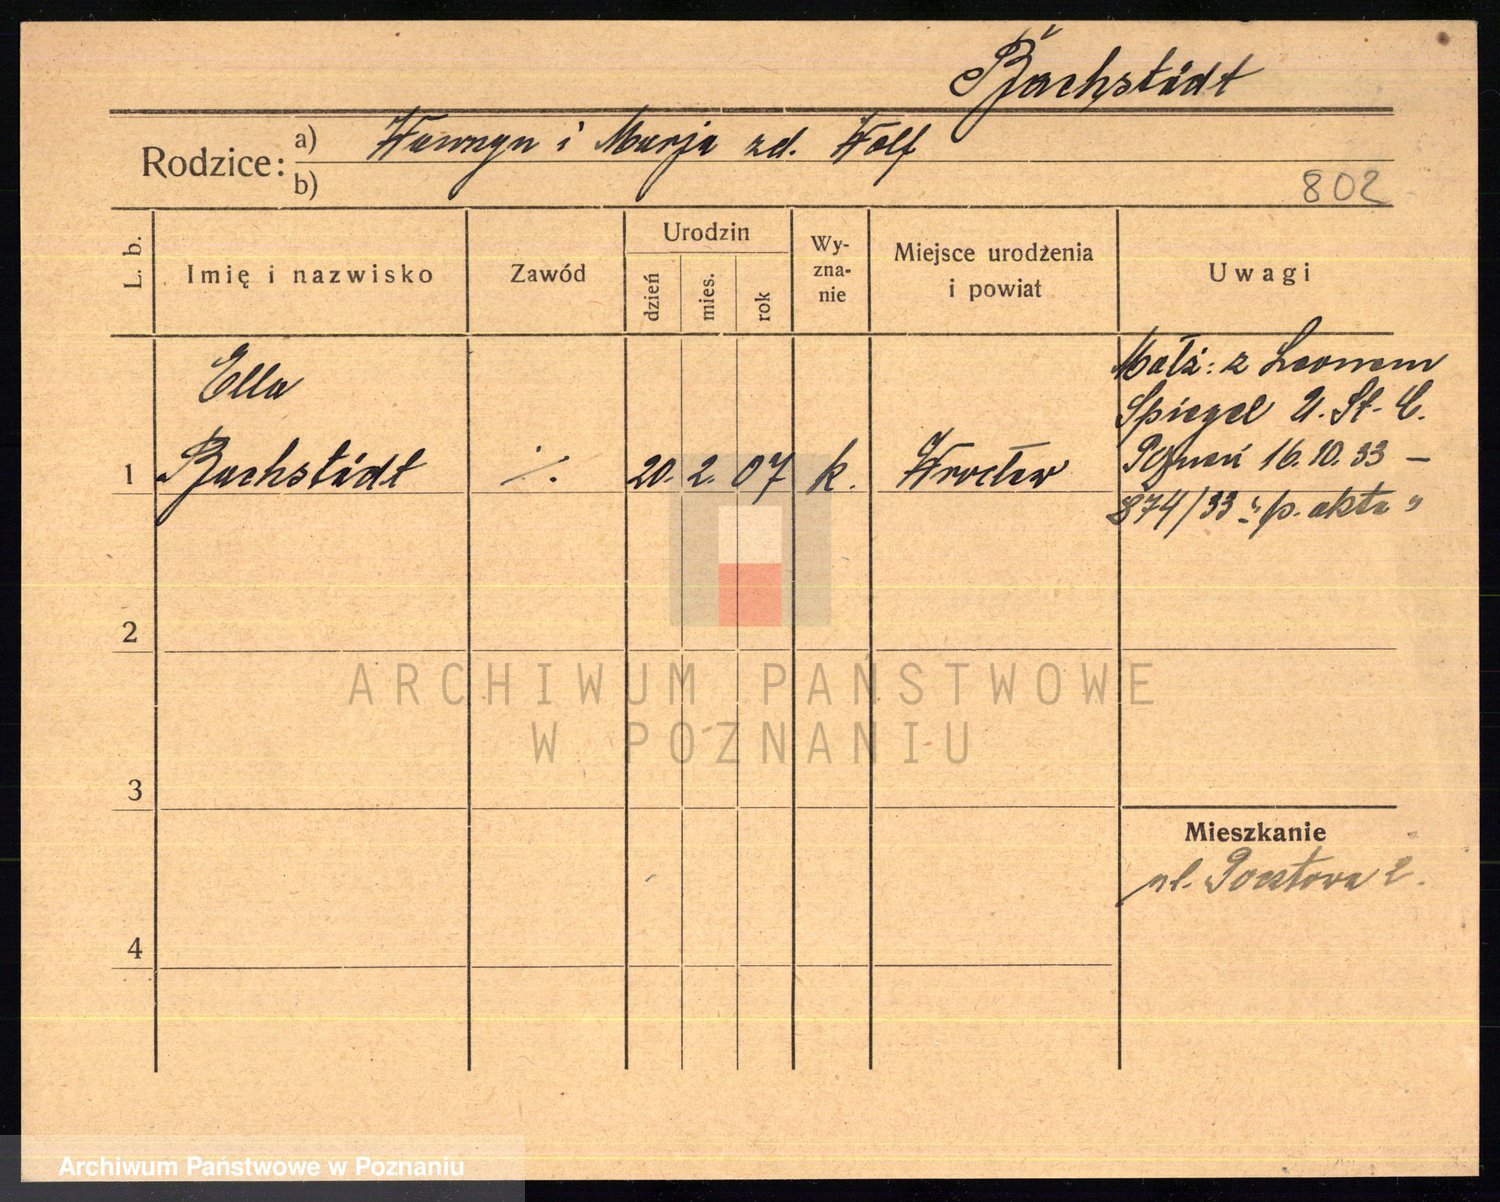 Bachstädt
Rodzice: a) Wawrzyn i Marja zd. Wolf
b)
802
L. b.
Imię i nazwisko
Zawód
Urodzin
dzień
mies.
rok
Wy-
zna-
nie
Miejsce urodzenia
i powiat
Uwagi
Ella
1 Bachstädt ./. 20. 2. 07 k. Wrocław
Małż: z Leonem
Spiegel U. St. C.
Poznań 16.10.33 —
874/33 „p. akta"
2
3
4
Mieszkanie
ul. Pocztowa 2.
ARCHIWUM PAŃSTWOWE
W POZNANIU
Archiwum Państwowe w Poznaniu